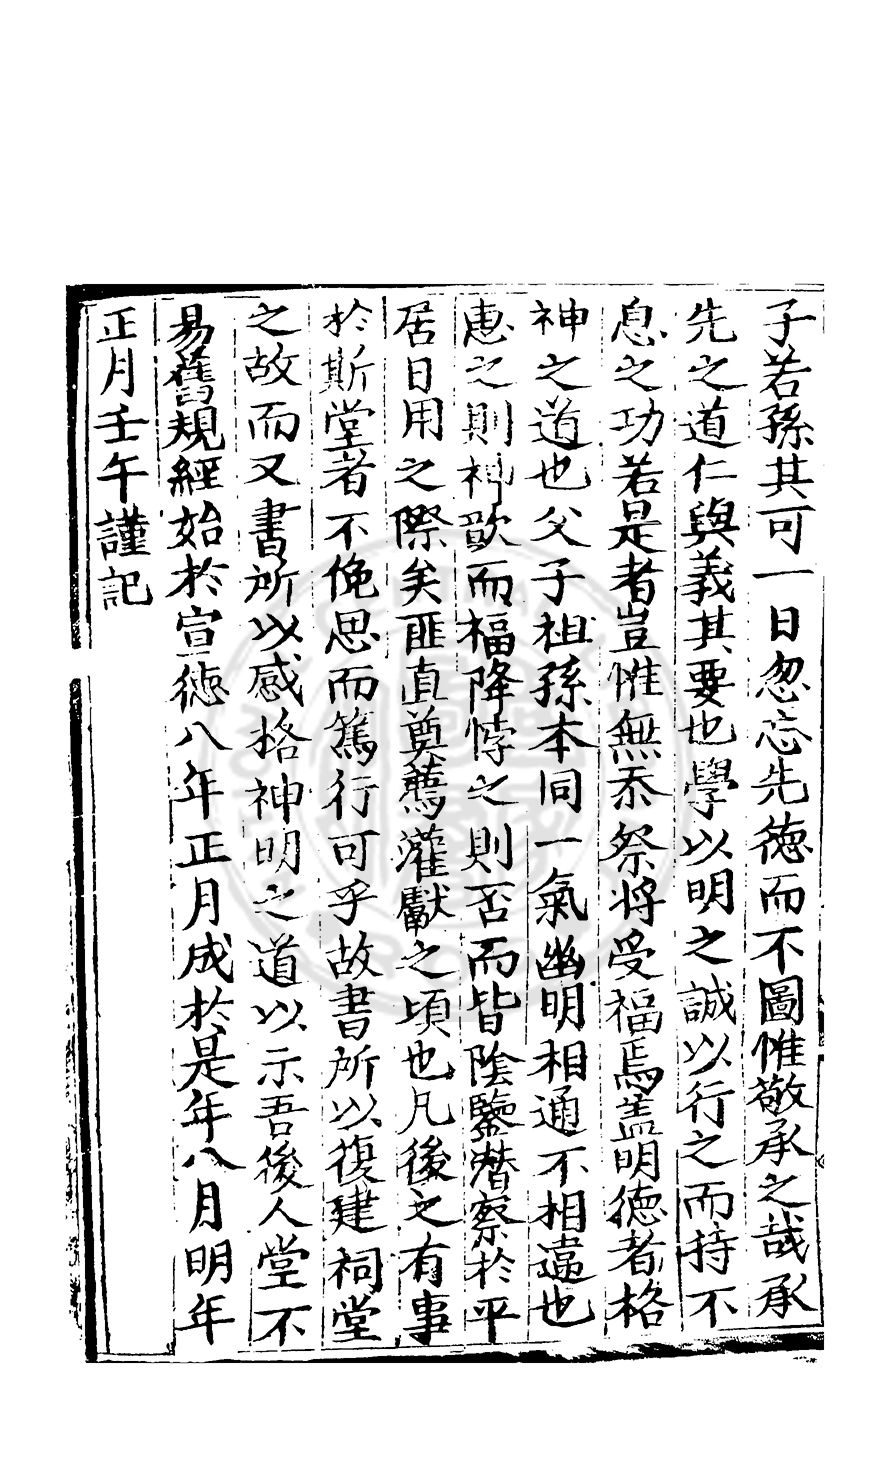 子若孫其可一日忽忘先德而不圖惟敬承之哉承
先之道仁與義其要也學以明之誠以行之而持不
息之功若是者豈惟無忝祭将受福焉盖明德者格
神之道也父子祖孫本同一氣幽明相通不相違也
惠之則神歆而福降悖之則否而皆陰鑒潜察於平
居日用之際矣匪直奠薦灌獻之頃也凡後之有事
於斯堂者不俛思而篤行可乎故書所以復建祠堂
之故而又書所以感格神明之道以示吾後人堂不
易舊規經始於宣德八年正月成於是年八月明年
正月壬午謹記